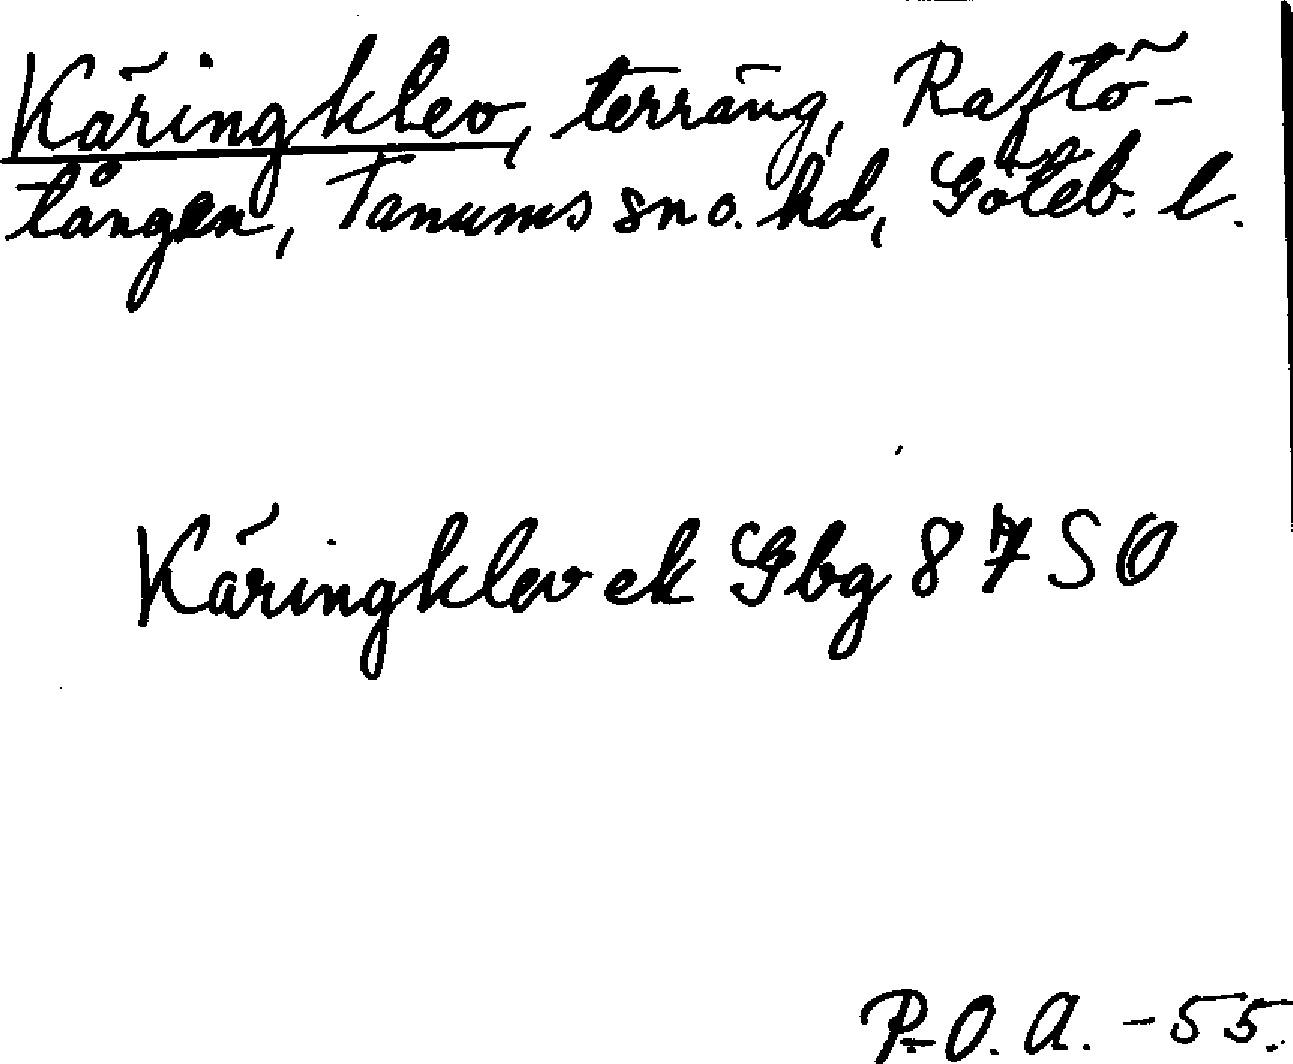 Käringklev, terräng, Raftö-
tången, Tanums sn o. hd, Göteb. l.
Käringklev ek Gbg 87 SO
P-O. A. -55.